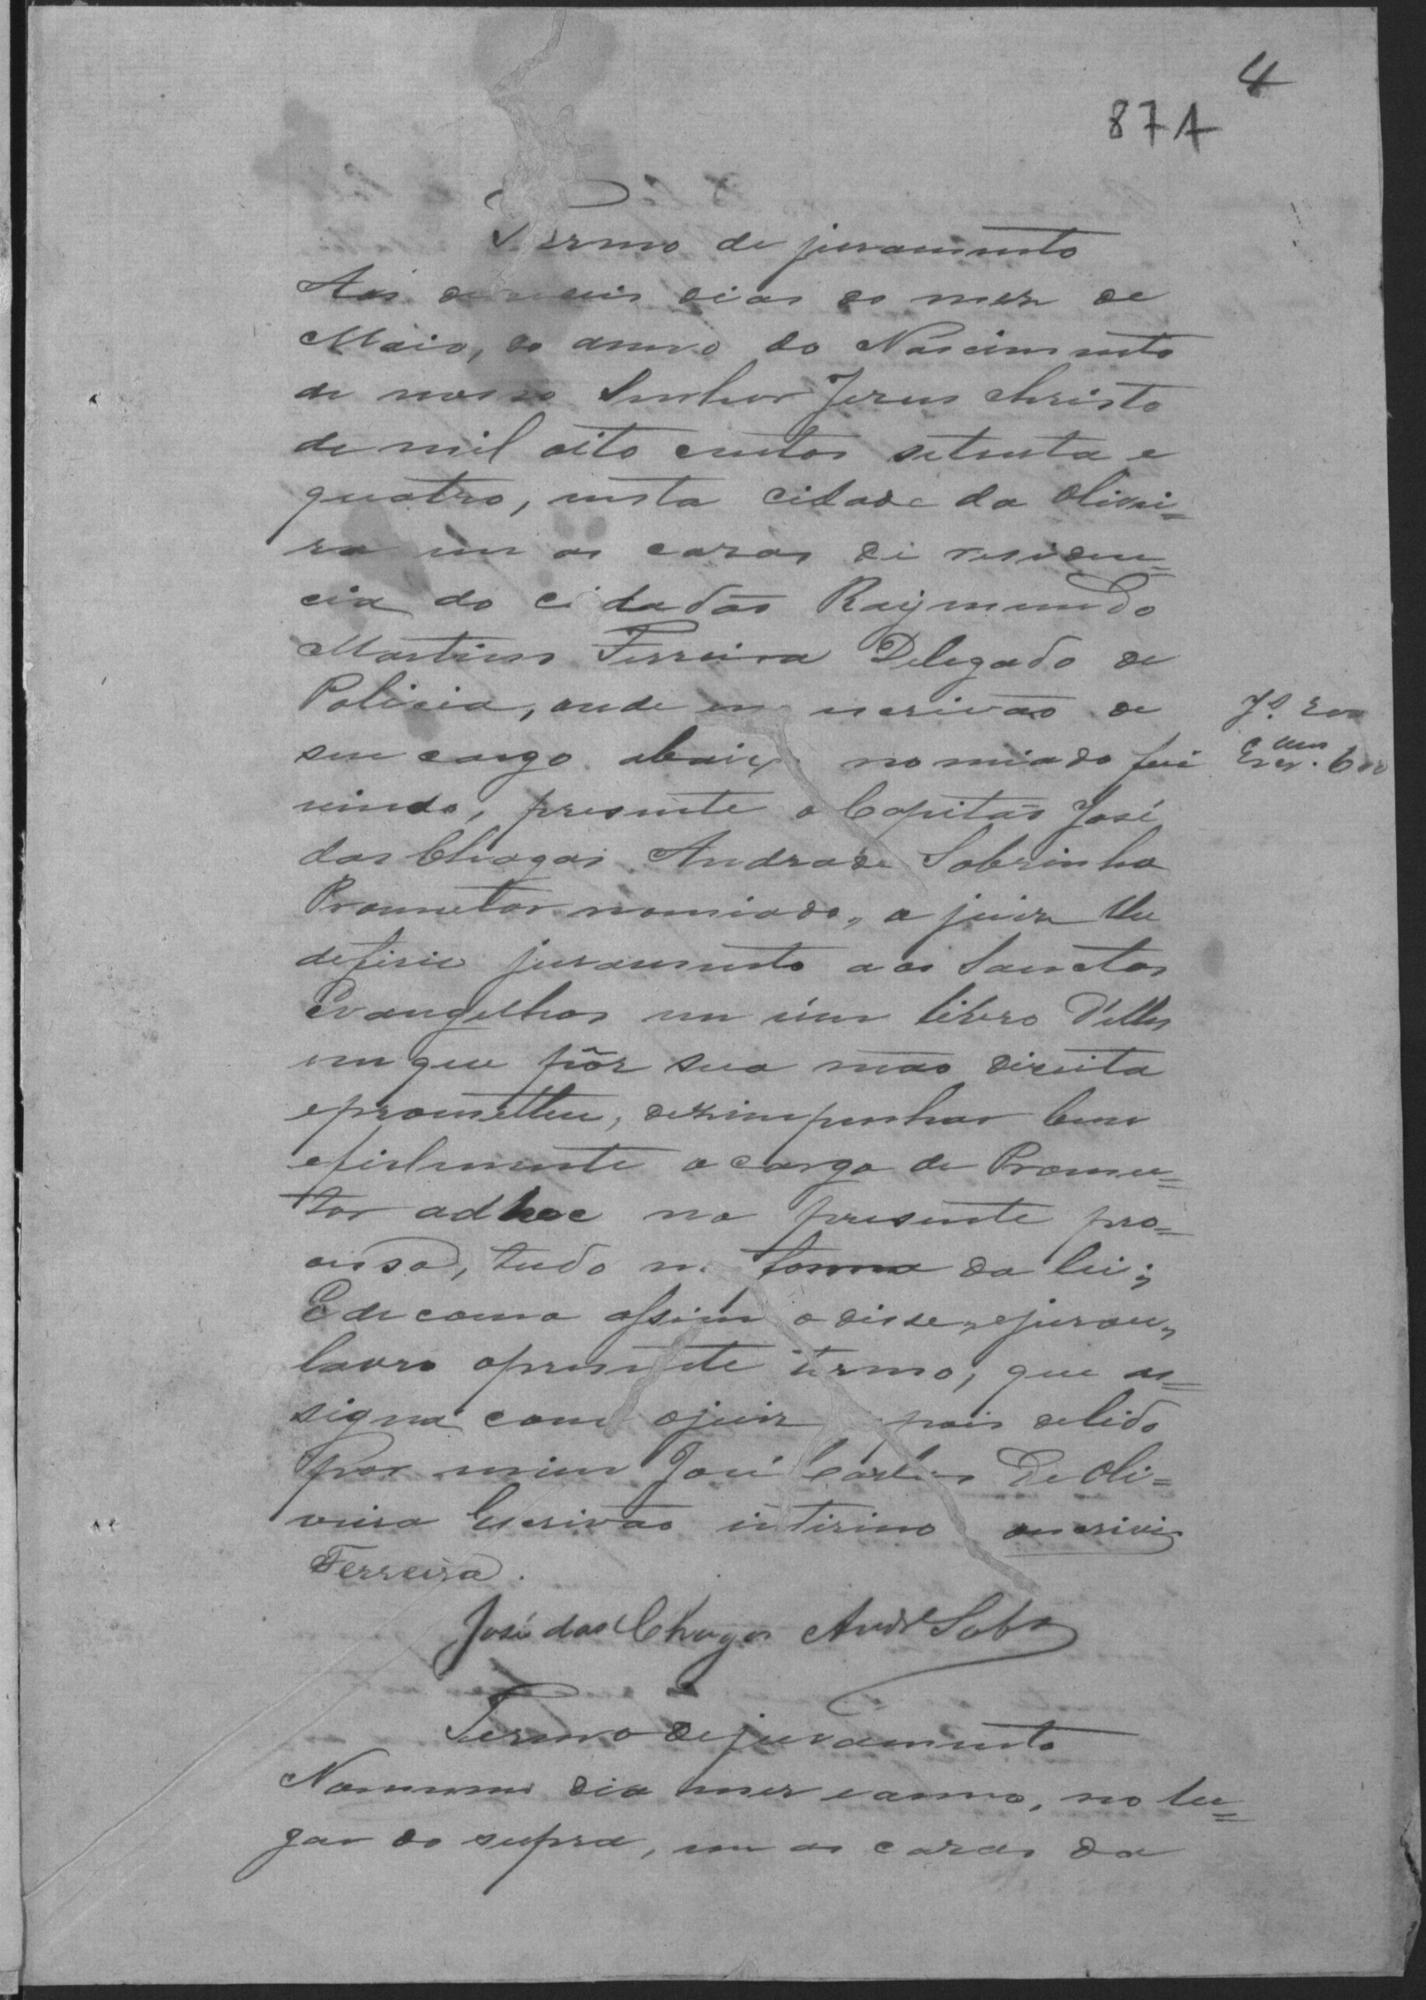 4
87A
Termo de juramento
Aos deseseis dias do mez de
Maio, do anno do Nascimento
de nosso Senhor Jesus Christo
de mil oito centos setenta e
quatro, nesta cidade da Olivei=
ra em as casas de residen=
cia do cidadão Raymundo
Martins Ferreira Delegado de
Policia, onde eu escrivão de
seu cargo abaixo nomiado fui
vindo, presente o Capitão José
das Chagas Andrade Sobrinho
Promutor nomiado, o juiz lhe
deferio juramento aos Sanctos
Evangelhos em um livro d'elles
em que pôz sua mão direita
e prometteu, dezimpenhar bem
e fielmente o cargo de Promu=
tor adhoc no presente pro=
cesso, tudo na forma da lei;
E de como assim o disse, e jurou,
lavro o presente termo, que as=
signa com o juiz depois de lido
por mim José Carlos de Oli=
veira Escrivão interino o escrivi
Ferreira.
José das Chagas Andr.e Sobr.o
Termo de juramento
No mesmo dia mez e anno, no lu=
gar do supra, em as casas da